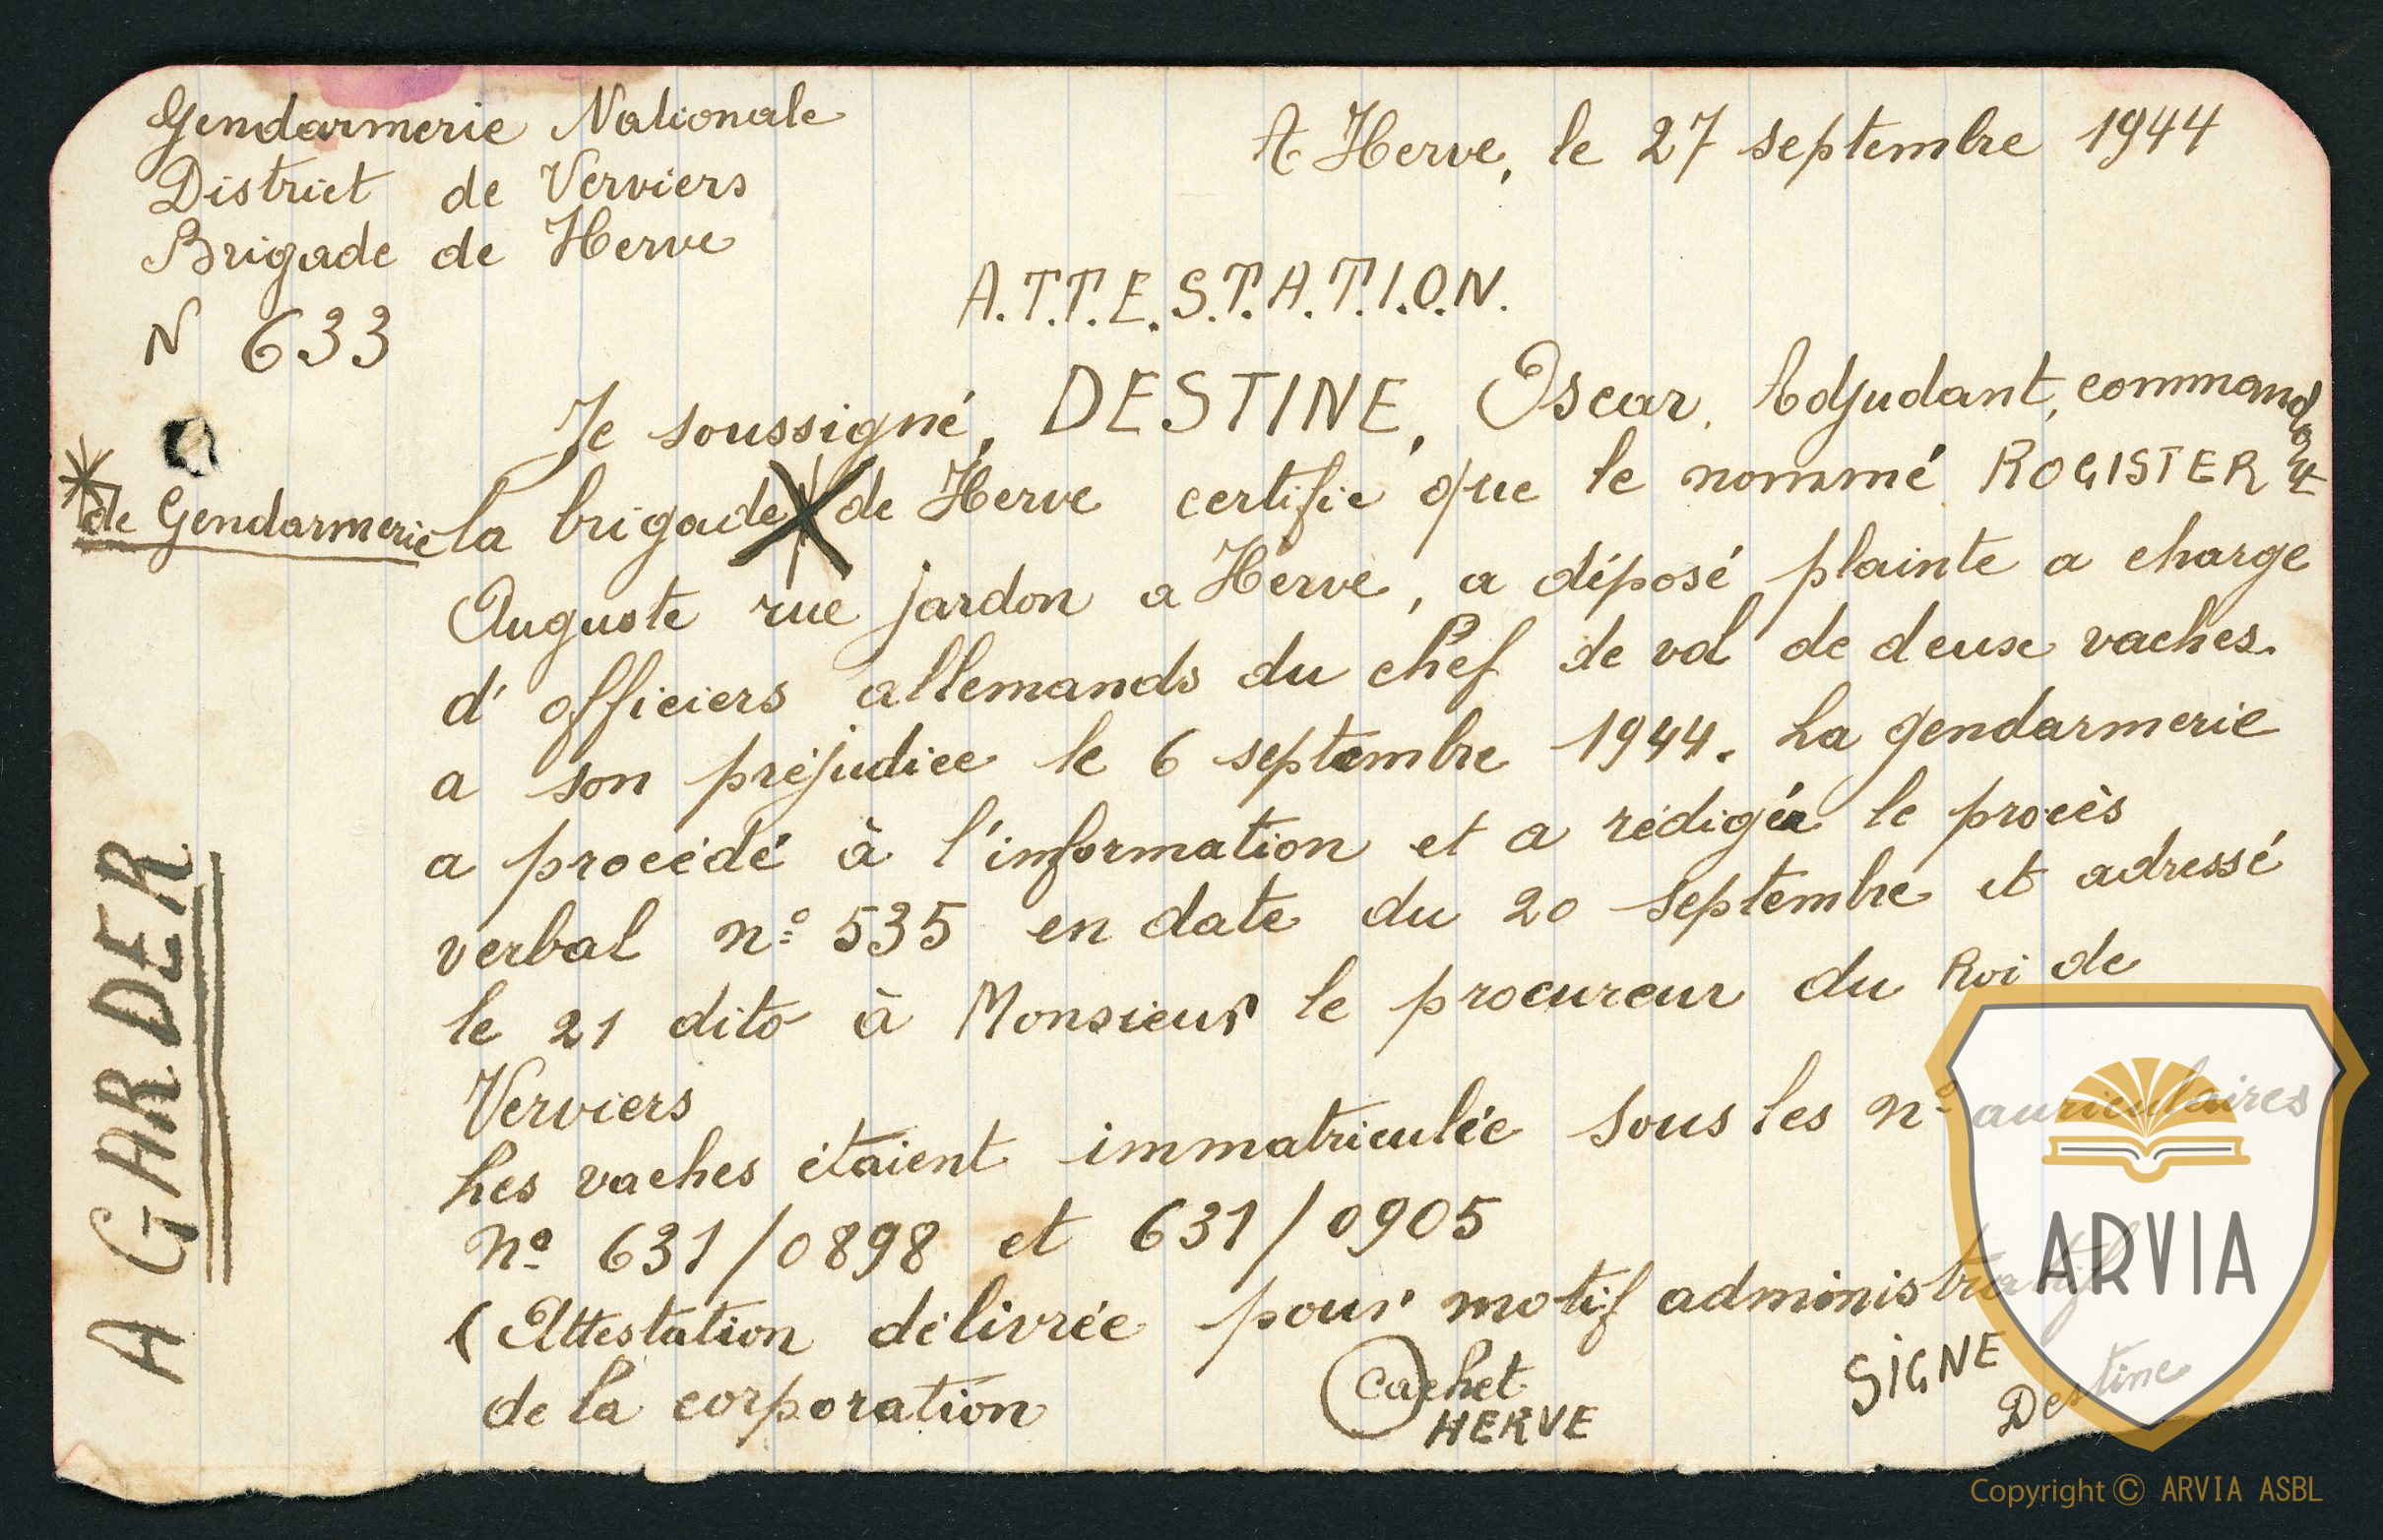 Gendarmerie Nationale
District de Verviers
Brigade de Herve
N 633
A Herve, le 27 septembre 1944
A.T.T.E.S.T.A.T.I.O.N.
Je soussigné, DESTINE, Oscar, Adjudant, commandant
* de Gendarmerie
la brigade * de Herve certifie que le nommé ROGISTER
Auguste rue jardon a Herve, a déposé plainte a charge
d'officiers allemands du chef de vol de deux vaches.
a son préjudice le 6 septembre 1944. La gendarmerie
a procédé à l'information et a rédigéa le procès
verbal n° 535 en date du 20 septembre et adressé
le 21 dito à Monsieur le procureur du Roi de
Verviers
Les vaches étaient immatriculée sous les n° auriculaires
n° 631/0898 et 631/0905
(Attestation délivrée pour motif administratif
de la corporation
Cachet
HERVE
SIGNE
Destine
A GARDER
ARVIA
Copyright © ARVIA ASBL